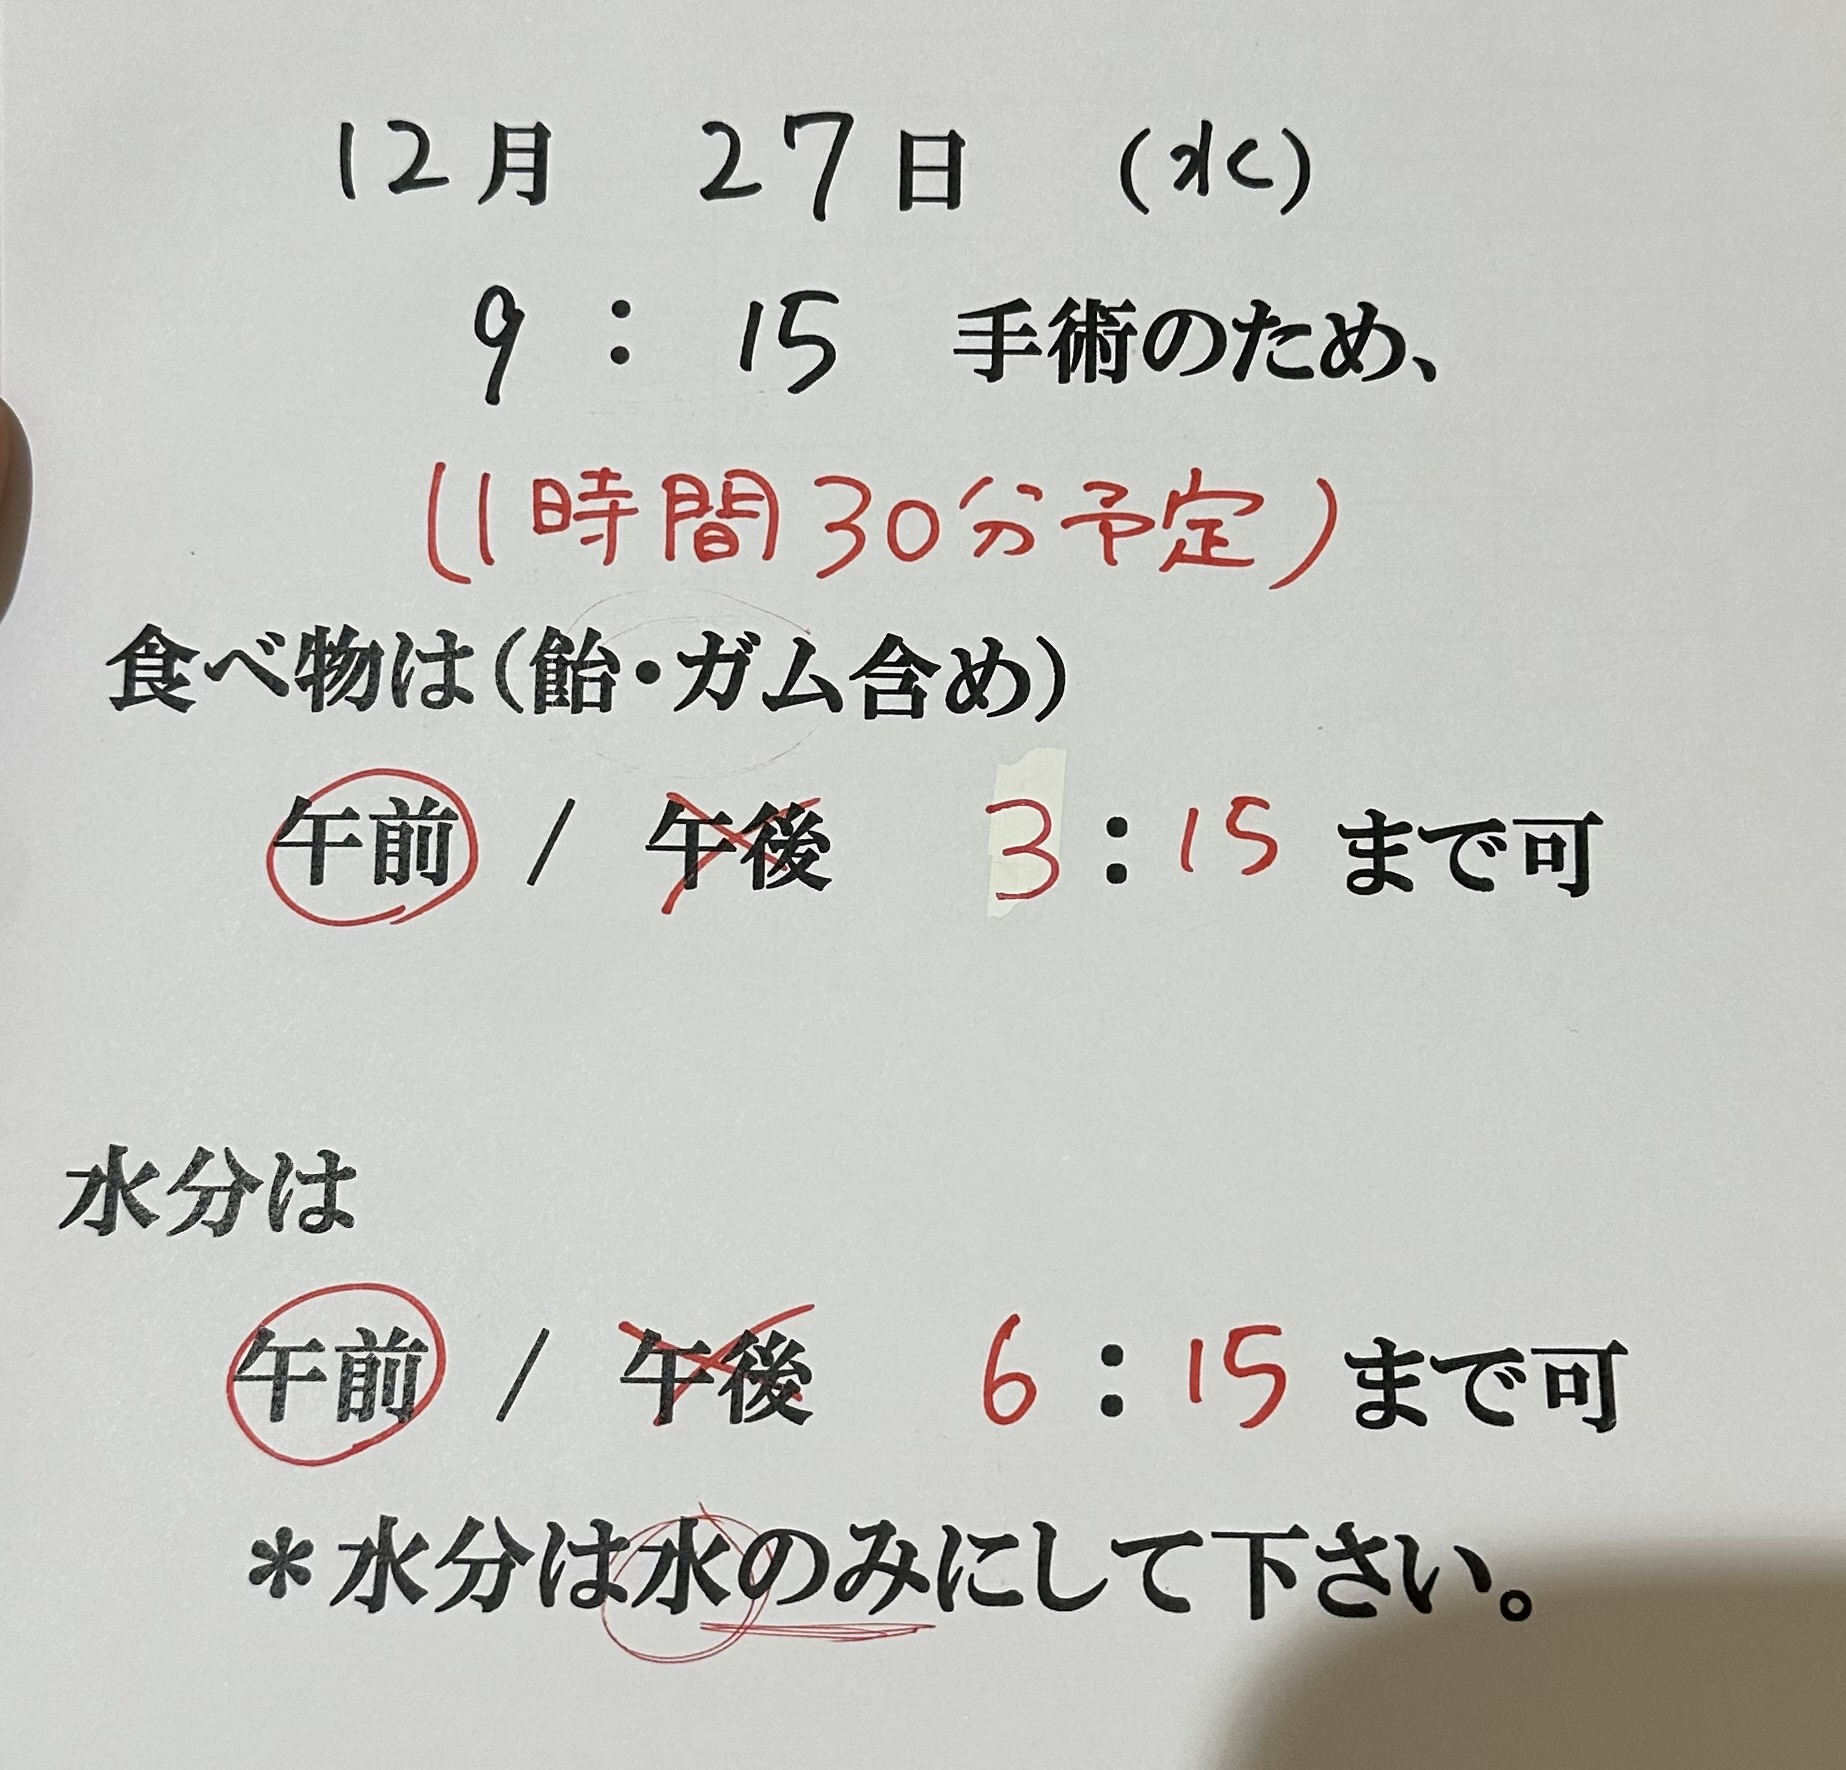 12月 27日 (水)
9 : 15 手術のため、
(1時間30分予定)
食べ物は(飴・ガム含め)
午前 / 午後 3 : 15 まで可
水分は
午前 / 午後 6 : 15 まで可
*水分は水のみにして下さい。